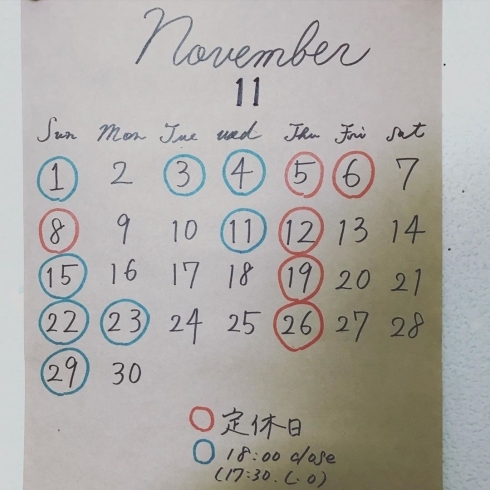 November
11
Sun Mon Tue wed Thu Fri sat
1 2 3 4 5 6 7
8 9 10 11 12 13 14
15 16 17 18 19 20 21
22 23 24 25 26 27 28
29 30
定休日
18:00 close
(17:30. L.O)